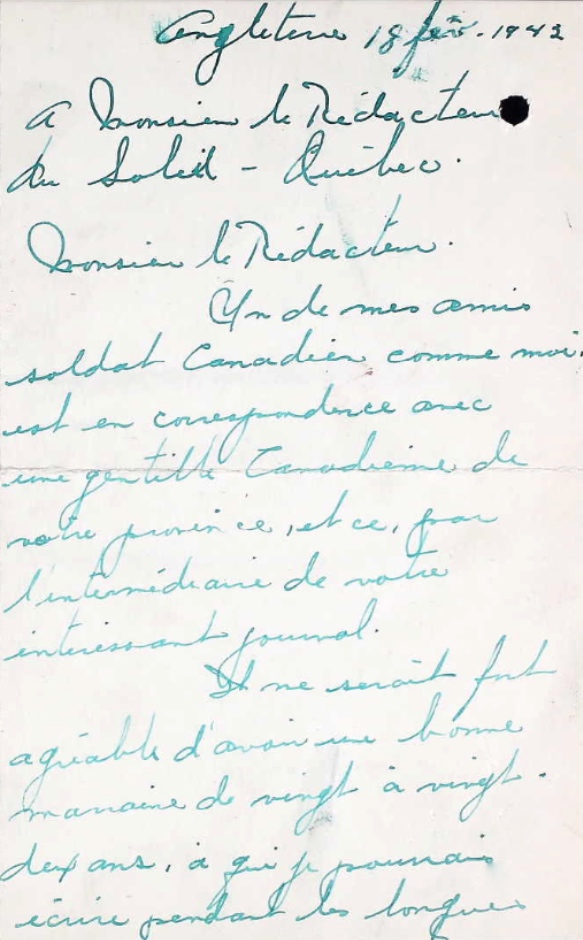 Angleterre 18 fév. 1942
A Monsieur le Rédacteur
du Soleil - Québec.
Monsieur le Rédacteur.
Un de mes amis
soldat Canadien comme moi.
est en correspondence avec
une gentille Canadienne de
votre province, et ce, par
l'intermédiaire de votre
intéressant journal.
Il me serait fort
agréable d'avoir une bonne
marraine de vingt à vingt-
deux ans, à qui je pourrais
écrire pendant les longues